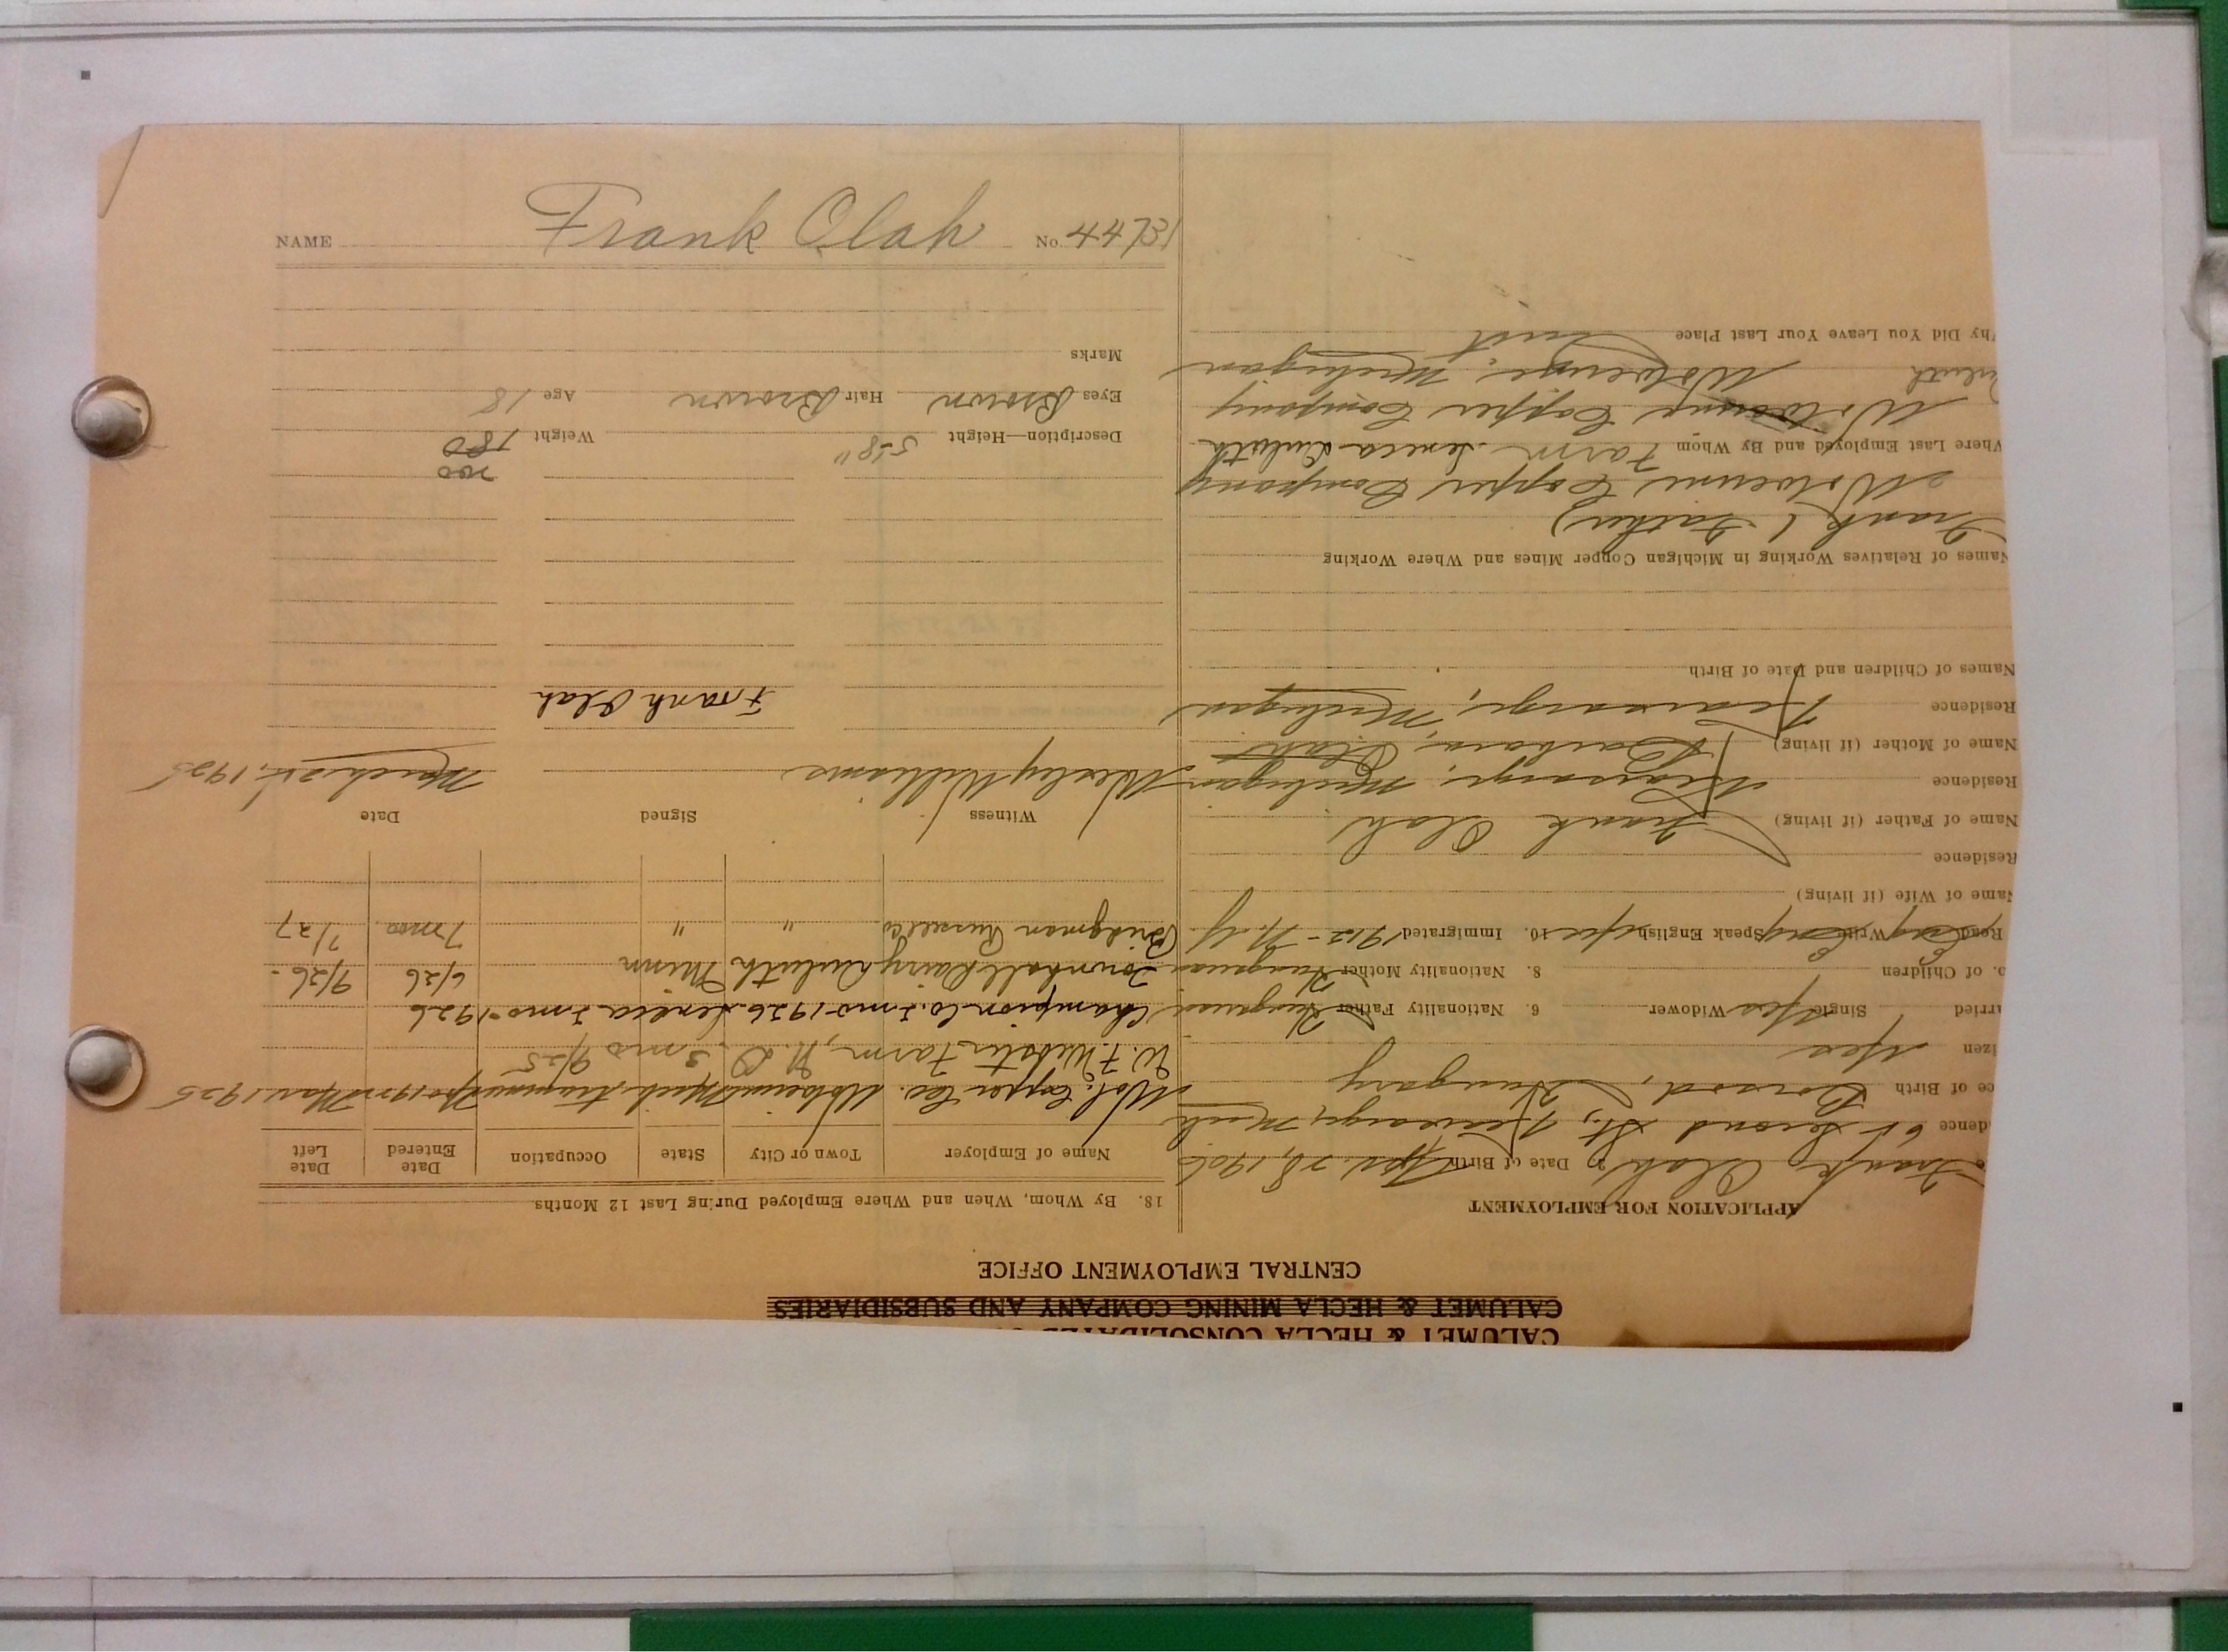 CALUMET & HECLA CONSOLIDATED
CALUMET & HECLA MINING COMPANY AND SUBSIDIARIES
CENTRAL EMPLOYMENT OFFICE
APPLICATION FOR EMPLOYMENT
Frank Olah 2. Date of Birth Apr. 28, 1906
dence 65 Second St., Kearsarge, Mich
ce of Birth Borsod, Hungary
izen Yes
arried Single Yes Widower 6. Nationality Father Hungarian
o. of Children 8. Nationality Mother Hungarian
Read Eng Write Eng Speak English yes 10. Immigrated 1912 - N.Y.
Name of Wife (if living)
Residence
Name of Father (if living) Frank Olah
Residence Kearsarge, Michigan
Name of Mother (if living) Barbara Olah
Residence Kearsarge, Michigan
Names of Children and Date of Birth
Names of Relatives Working in Michigan Copper Mines and Where Working
Frank (Father)
Wolverine Copper Company
Where Last Employed and By Whom Farm Seneca Duluth
Wolverine Copper Company
Duluth Wolverine, Michigan
Why Did You Leave Your Last Place Quit
18. By Whom, When and Where Employed During Last 12 Months
Name of Employer Town or City State Occupation Date Entered Date Left
Wol. Copper Co. Wolverine Mich. 1925 Mar. 1925
W. F. Webster Farm, N. D. 3 mo 9/25
Champion Co. 2 mo 1926. Seneca 2 mo 1926
Townhall Dairy Duluth Minn 6/26 9/26 -
Bridgman Russel Co " " 7 mos. 1/27
Witness Signed Date
Wesley Williams March 25, 1925
Frank Olah
200
Description—Height 5-8" Weight 180
Eyes Brown Hair Brown Age 18
Marks
NAME Frank Olah No. 44731